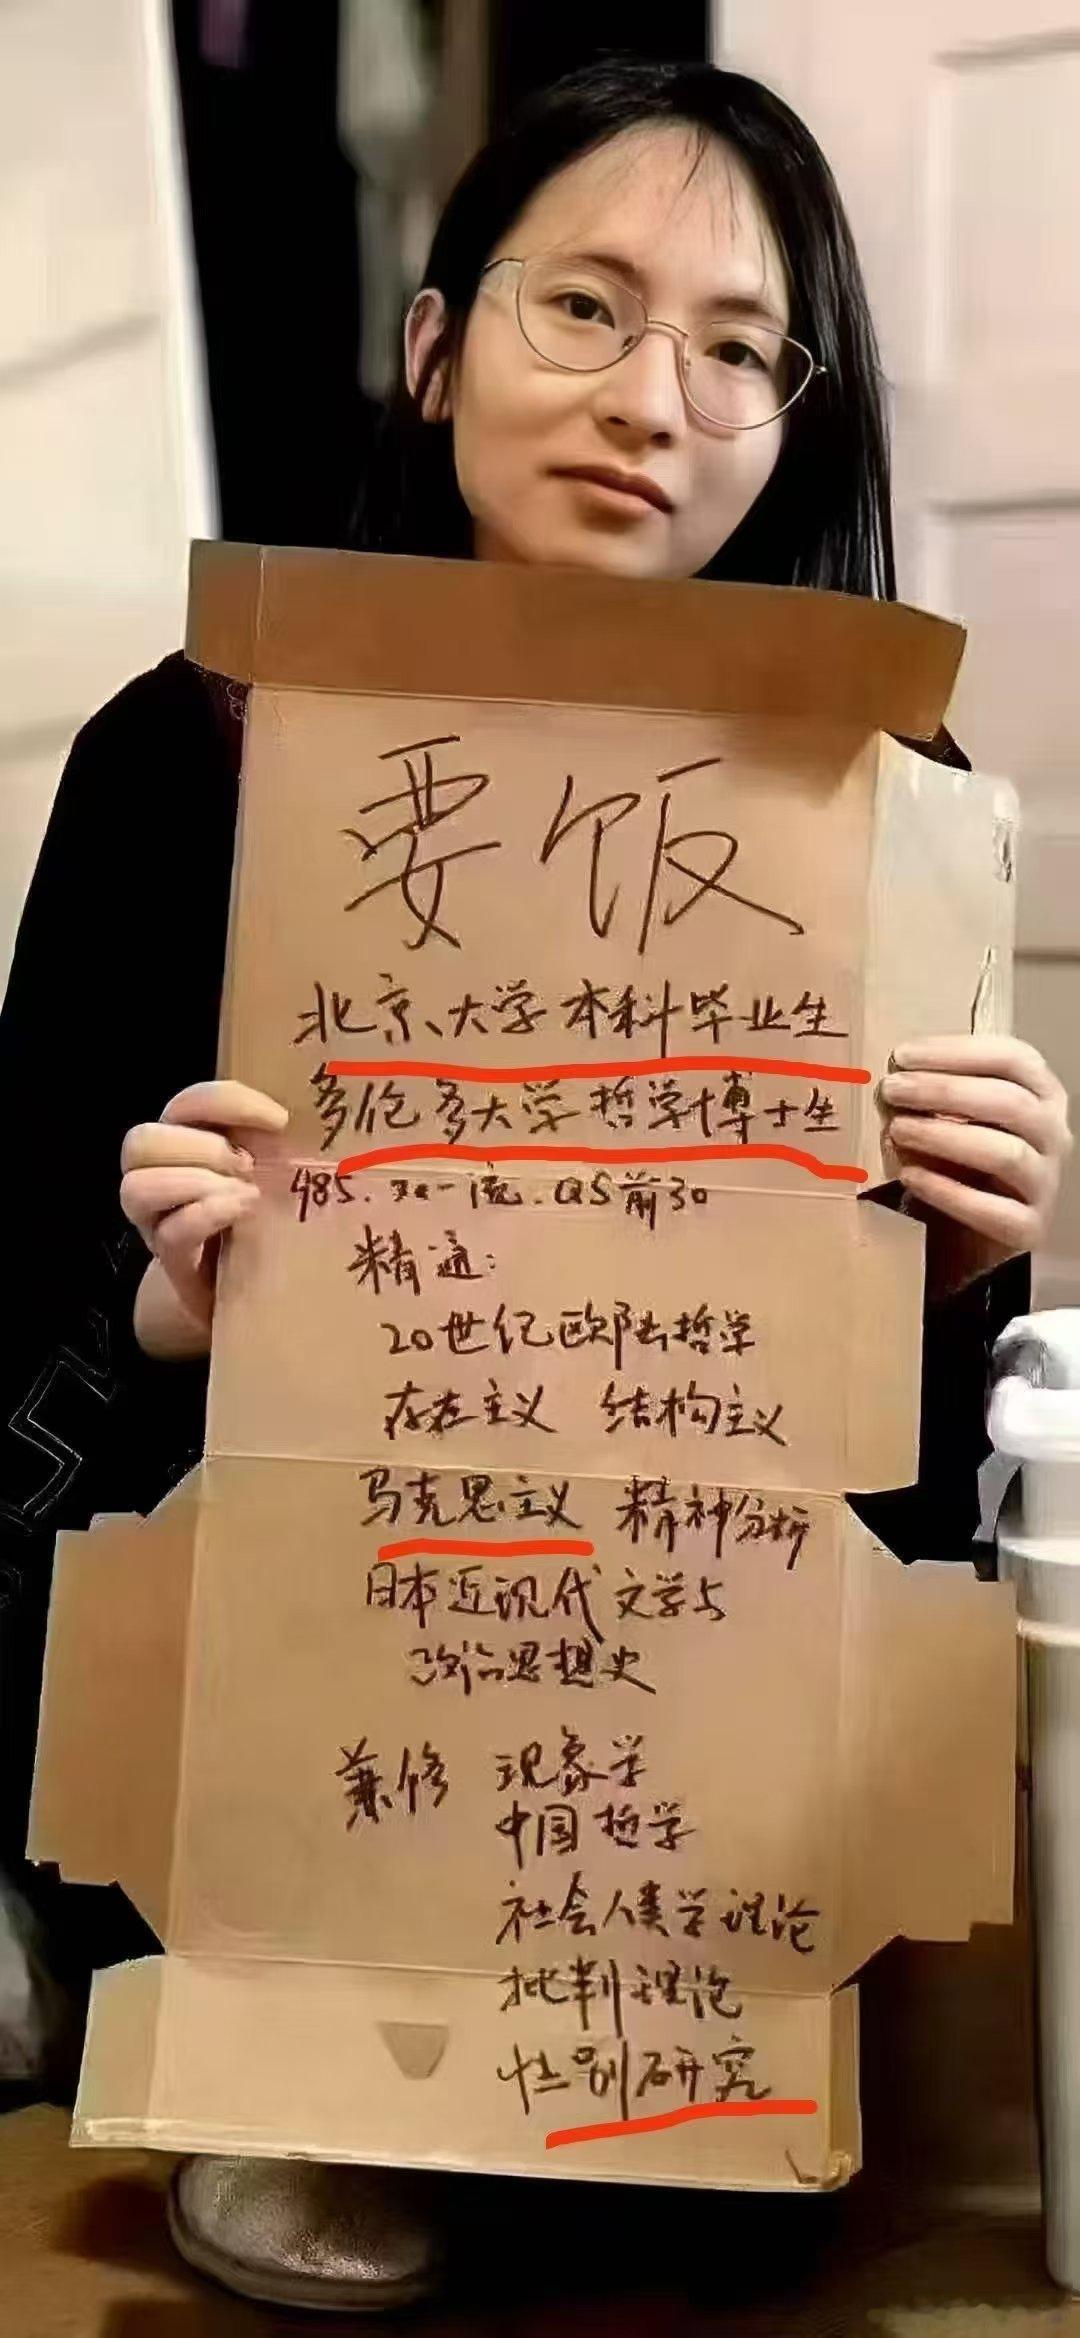 要饭
北京大学本科毕业生
多伦多大学哲学博士生
985.双一流.QS前30
精通:
20世纪欧陆哲学
存在主义 结构主义
马克思主义 精神分析
日本近现代文学与
政治思想史
兼修 现象学
中国哲学
社会人类学理论
批判理论
性别研究